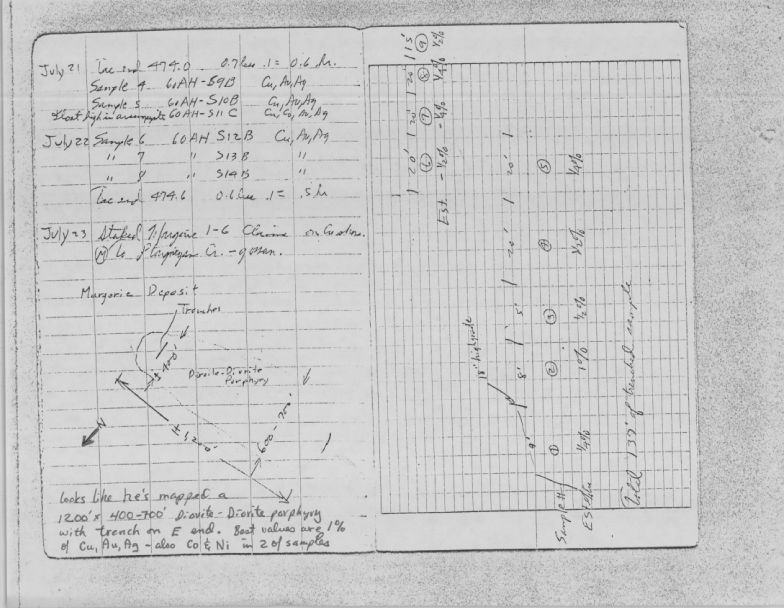 July 21 Tac end 474.0 0.7 less .1 = 0.6 hr.
Sample 4 60AH-S9B Cu, Au, Ag
Sample 5 60AH-S10B Cu, Au, Ag
Float high in 60AH-S11C Cu, Co, Au, Ag
July 22 Sample 6 60AH S12B Cu, Au, Ag
" 7 " S13B "
" 8 " S14B "
Tac end 474.6 0.6 less .1 = .5 hr
July 23 Staked 1-6 Claims on
(M) to Ptarmigan Cr. - gossan.
Marjorie Deposit
Trenches
Diorite-Diorite
Porphyry
N
1200'
600-700'
looks like he's mapped a
1200' x 400-700' Diorite-Diorite porphyry
with trench on E end. Best values are 1%
of Cu, Au, Ag - also Co & Ni in 2 of samples
20' 20' 20' 15'
⑥ ⑦ ⑧ ⑨
Est. - ½% - ¼% ¼% ½%
18' highgrade
9' 8' 5' 20' 20'
Sample # ① ② ③ ④ ⑤
Estimate ¼% 1% ½% ½% ¼%
Total 137' of trenched sample